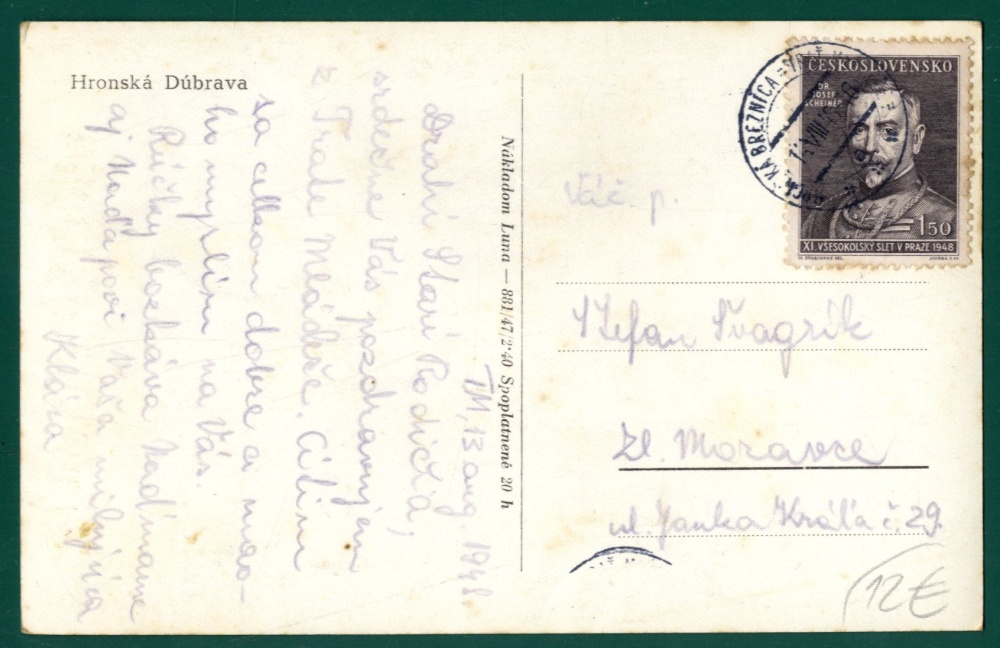 Hronská Dúbrava
TM, 13 aug. 1948.
Drahí Starí Rodičia,
srdečne Vás pozdravujem
z Trate Mládeže. Cítim
sa celkom dobre a mno-
ho myslím na Vás.
Rúčky bozkáva Naďmame
aj Naďapovi Vaša milujúca
Klára
Nákladom Luna — 881/47/2·40 Spoplatnené 20 h
ČESKOSLOVENSKO
DR.
JOSEF
SCHEINER
1.50
XI. VŠESOKOLSKÝ SLET V PRAZE 1948
KÁ BREZNICA
Váč. p.
Štefan Švagrík
Zl. Moravce
ul. Janka Kráľa č. 29.
12€